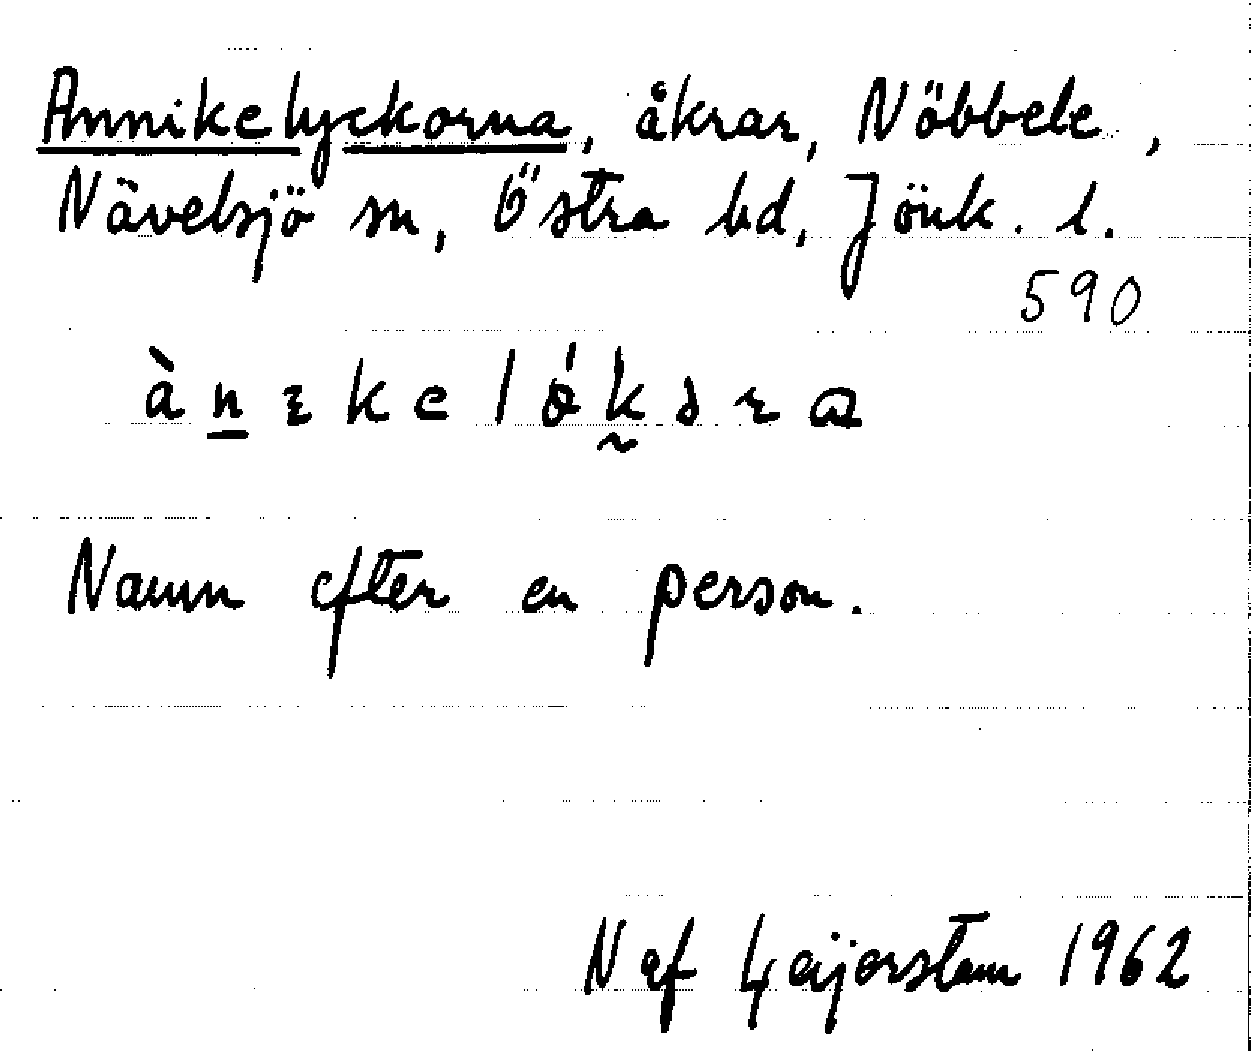 Annikelyckorna, åkrar, Nöbbele,
Nävelsjö sn, Östra hd, Jönk. l.
590
Namn efter en person.
N af Geijerstam 1962